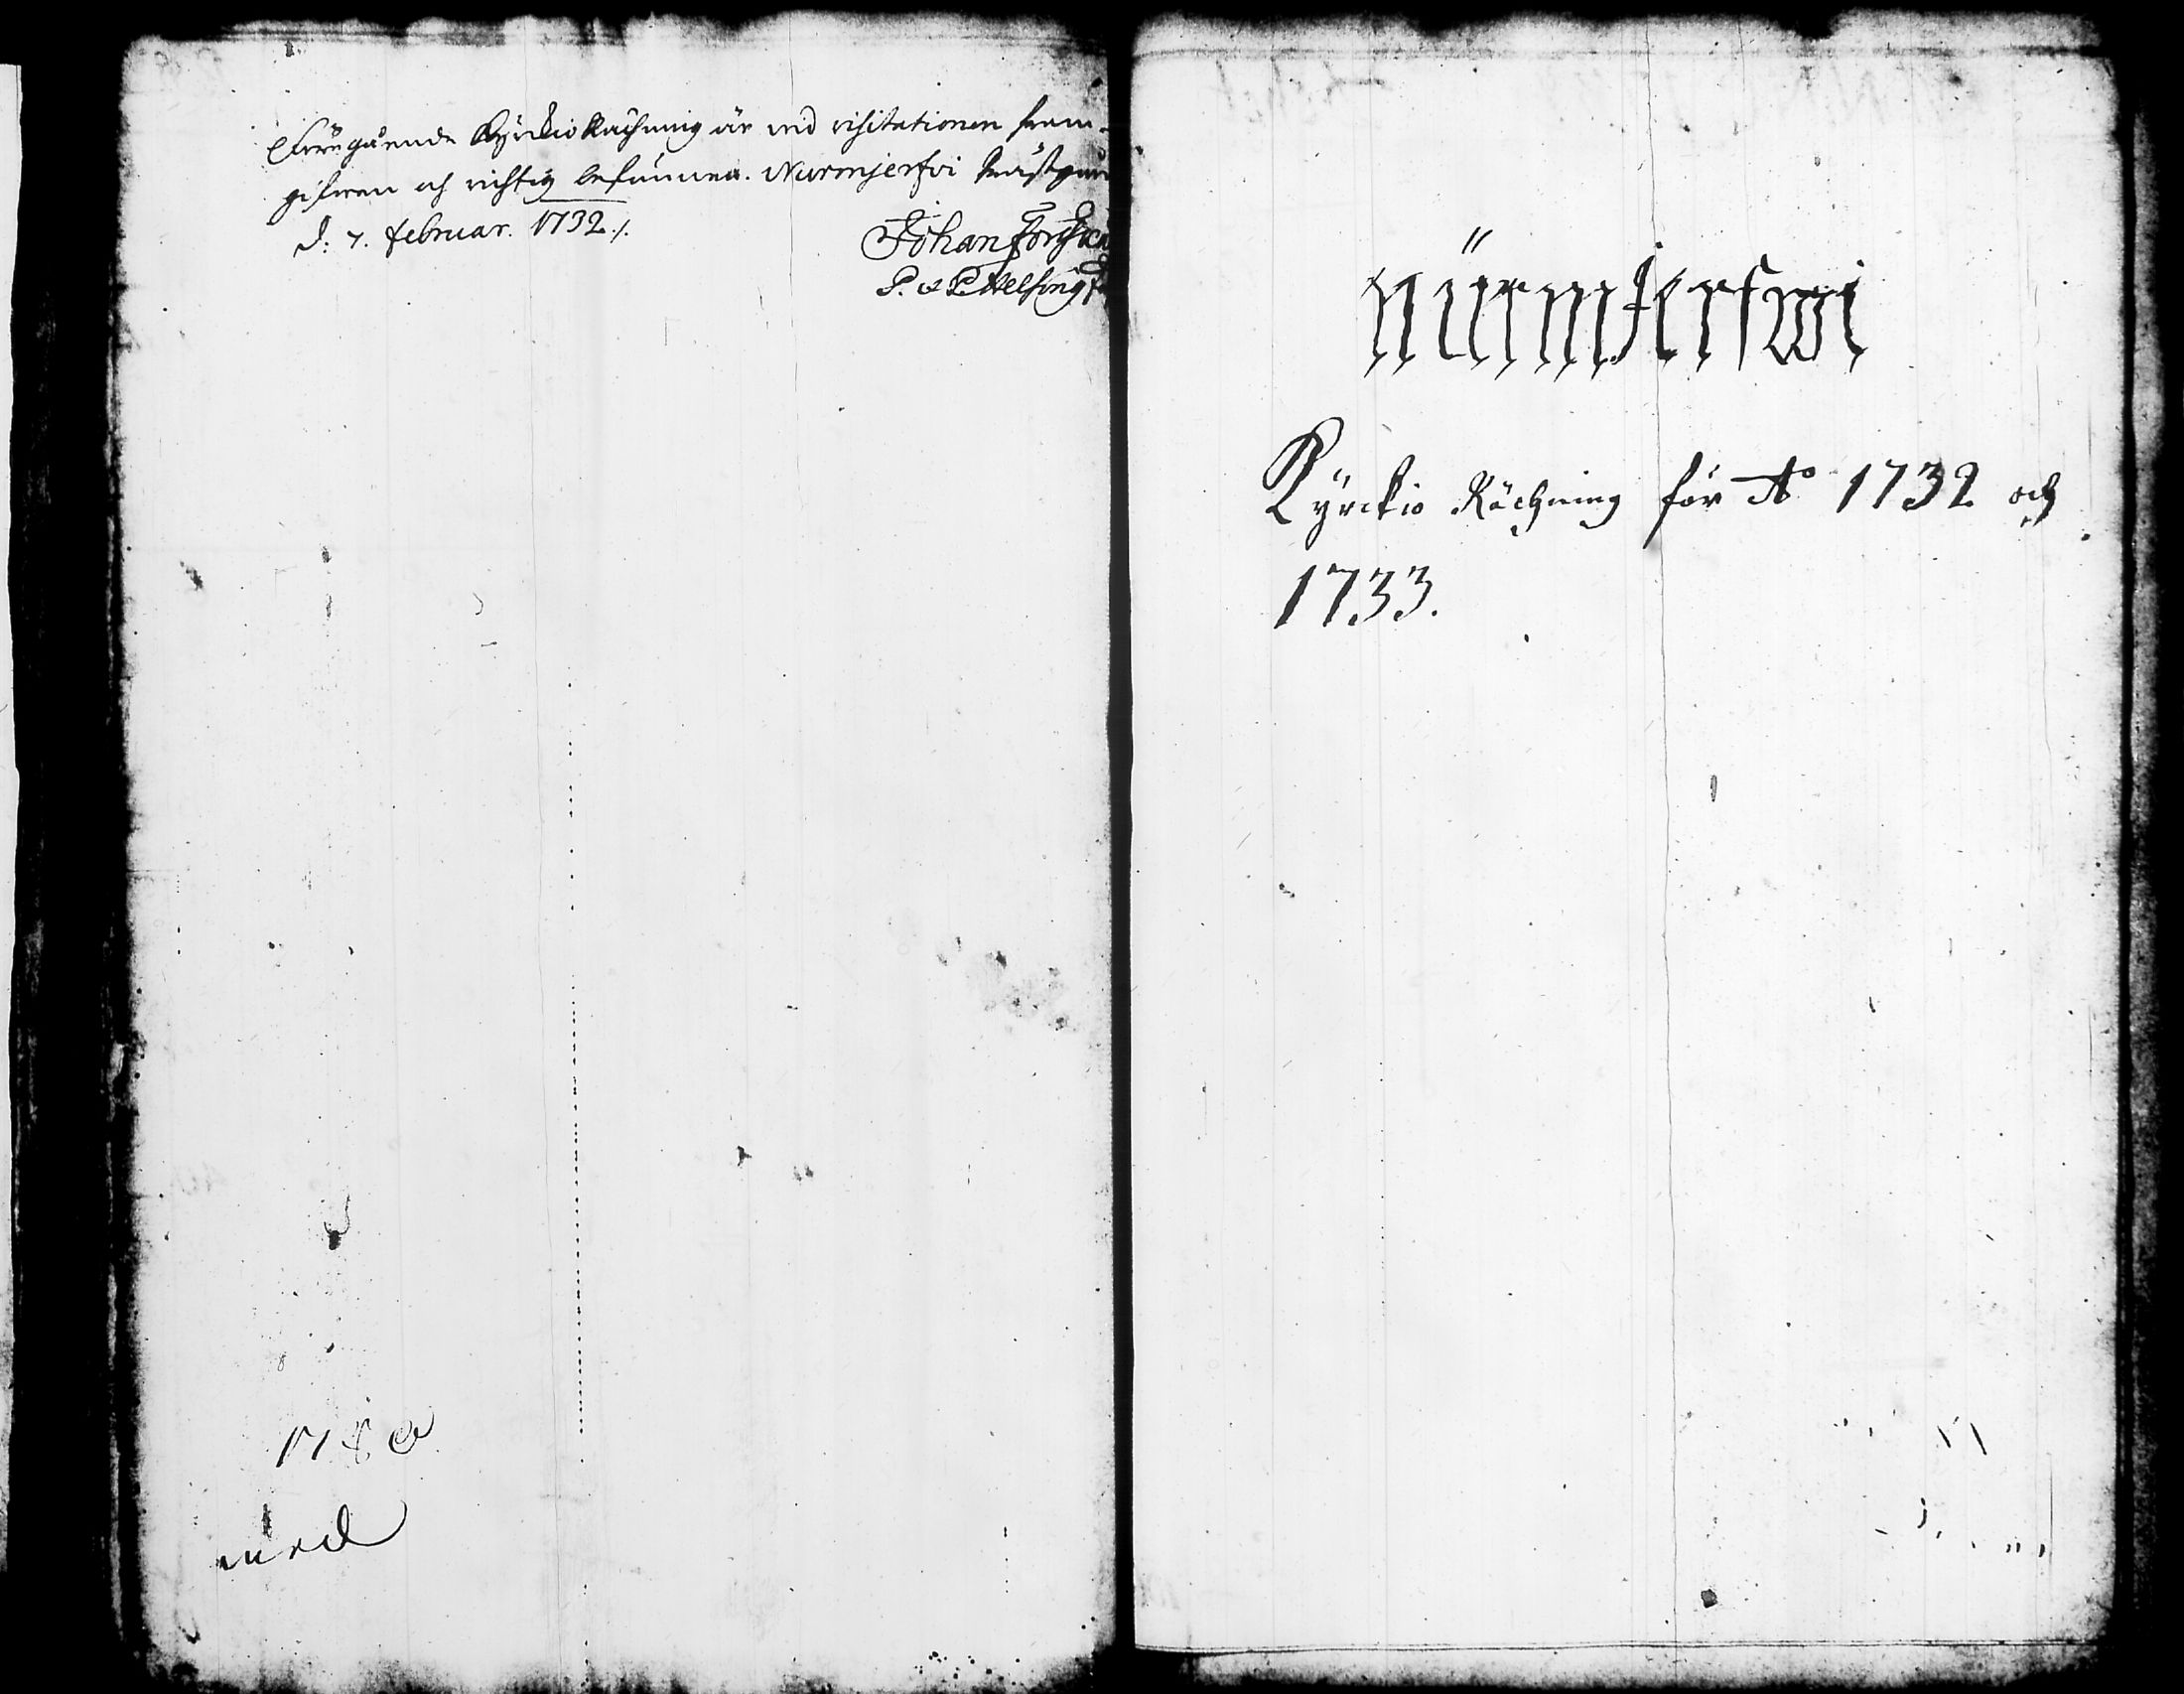 Föregående Kyrckio Rächning är vid visitationen fram-
gifwen och richtig befunnen. Nurmjerfvi Prästgård
d: 7. februar. 1732 ./.
Johan
P. & P. Helsingf
1780
med
Nürmjerfwi
Kyrckio Rächning för Ao 1732 och
1733.